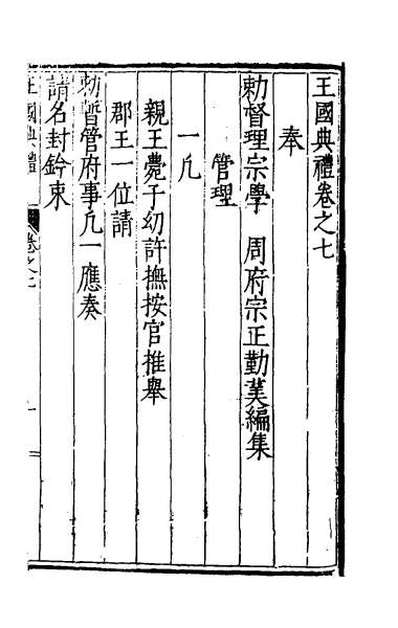 王國典禮卷之七
奉
勅督理宗學 周府宗正勤羙編集
管理
一凡
親王薨子幼許撫按官推舉
郡王一位請
勅暫管府事凡一應奏
請名封鈐束
王國典禮
卷之七
一